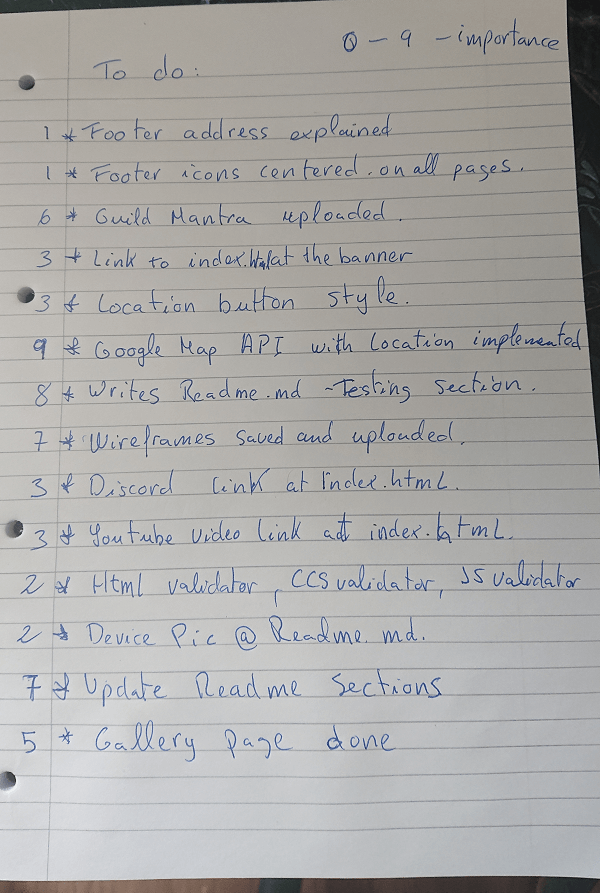 0 - 9 - importance
To do:
1 * Footer address explained
1 * Footer icons centered. on all pages.
6 * Guild Mantra uploaded.
3 * Link to index.html at the banner
3 * Location button style.
9 * Google Map API with Location implemented
8 * Writes Readme.md - Testing section.
7 * Wireframes saved and uploaded.
3 * Discord link at index.html.
3 * Youtube video link at index.html.
2 * Html validator, CCS validator, JS validator
2 * Device Pic @ Readme.md.
7 * Update Readme Sections
5 * Gallery page done